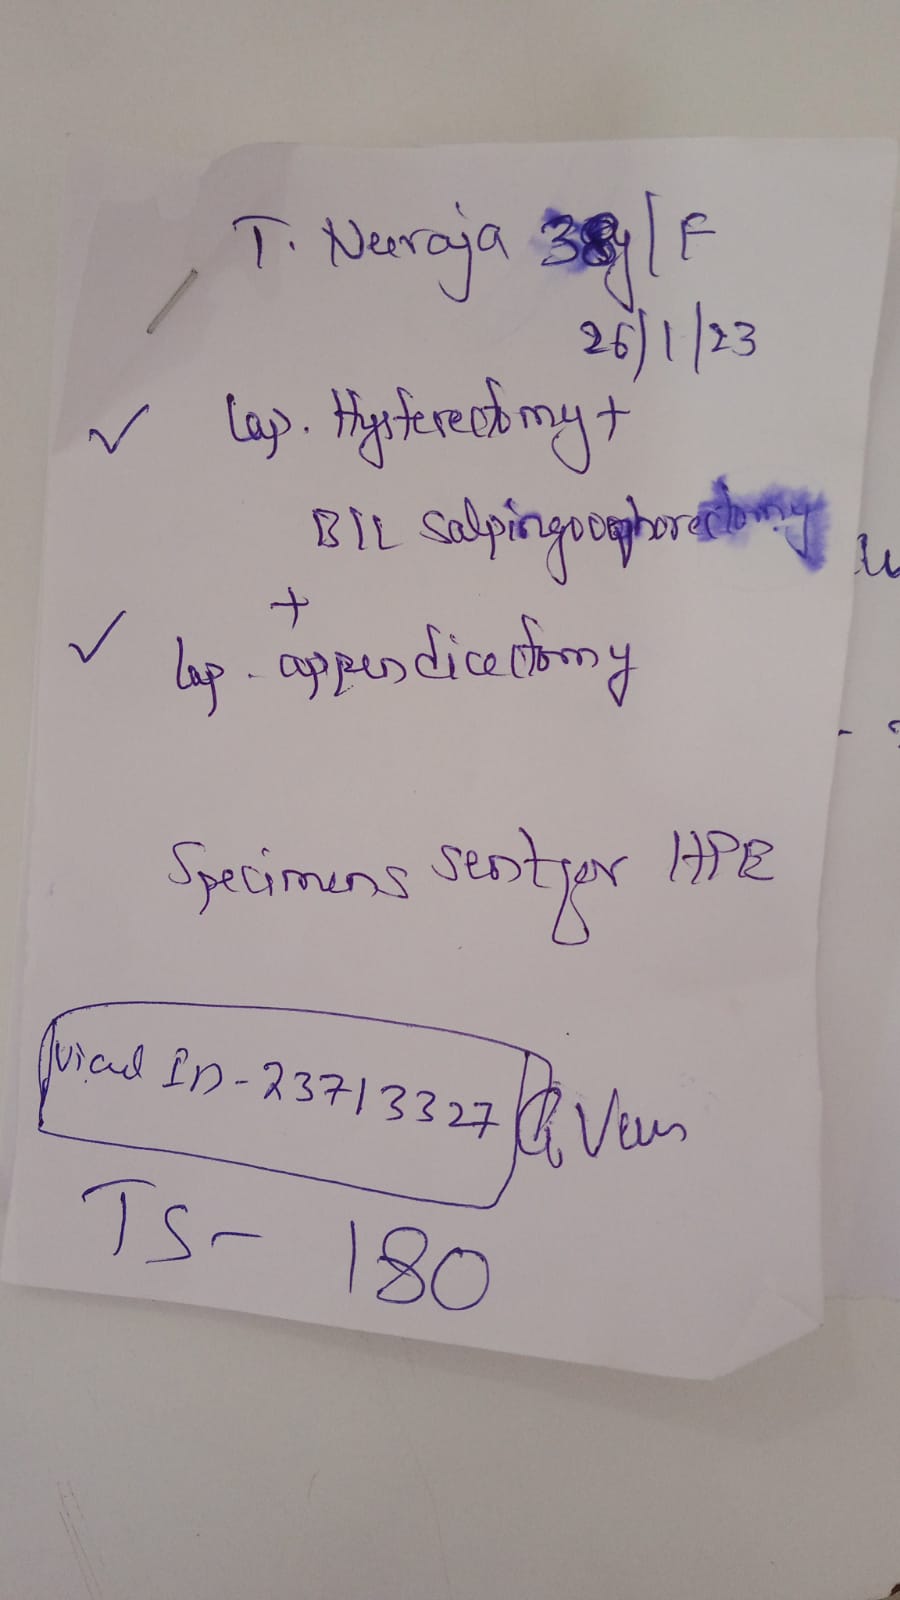 T. Neeraja 38y/F
26/1/23
✓ Lap. Hysterectomy +
B/L Salpingoophorectomy
+
✓ lap. appendicectomy
Specimens sent for HPE
ID - 23713327
TS - 180